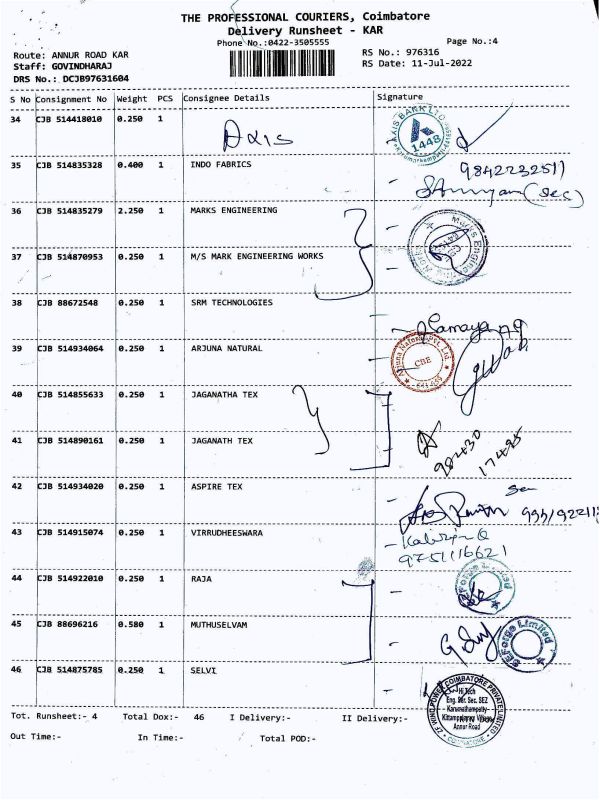 THE PROFESSIONAL COURIERS, Coimbatore
Delivery Runsheet - KAR
Phone No.:0422-3505555
Page No.:4
Route: ANNUR ROAD KAR
RS No.: 976316
Staff: GOVINDHARAJ
RS Date: 11-Jul-2022
DRS No.: DCJB97631604
S No Consignment No Weight PCS Consignee Details Signature
34 CJB 514418010 0.250 1 Axis
AXIS BANK LTD
1448
35 CJB 514835328 0.400 1 INDO FABRICS
9842232511
(Sec)
36 CJB 514835279 2.250 1 MARKS ENGINEERING
37 CJB 514870953 0.250 1 M/S MARK ENGINEERING WORKS
38 CJB 88672548 0.250 1 SRM TECHNOLOGIES
39 CJB 514934064 0.250 1 ARJUNA NATURAL
Arjuna Natural Pvt. Ltd.
CBE
40 CJB 514855633 0.250 1 JAGANATHA TEX
41 CJB 514890161 0.250 1 JAGANATH TEX
98430
17495
42 CJB 514934020 0.250 1 ASPIRE TEX
43 CJB 514915074 0.250 1 VIRRUDHEESWARA
9751116621
44 CJB 514922010 0.250 1 RAJA
45 CJB 88696216 0.580 1 MUTHUSELVAM
Forge Limited
46 CJB 514875785 0.250 1 SELVI
ZF WIND POWER COIMBATORE PRIVATE LIMITED
Hi Tech
Eng. Ser. Sec. SEZ
Karumathampatty
Annur Road
COIMBATORE
Tot. Runsheet:- 4 Total Dox:- 46 I Delivery:- II Delivery:-
Out Time:- In Time:- Total POD:-